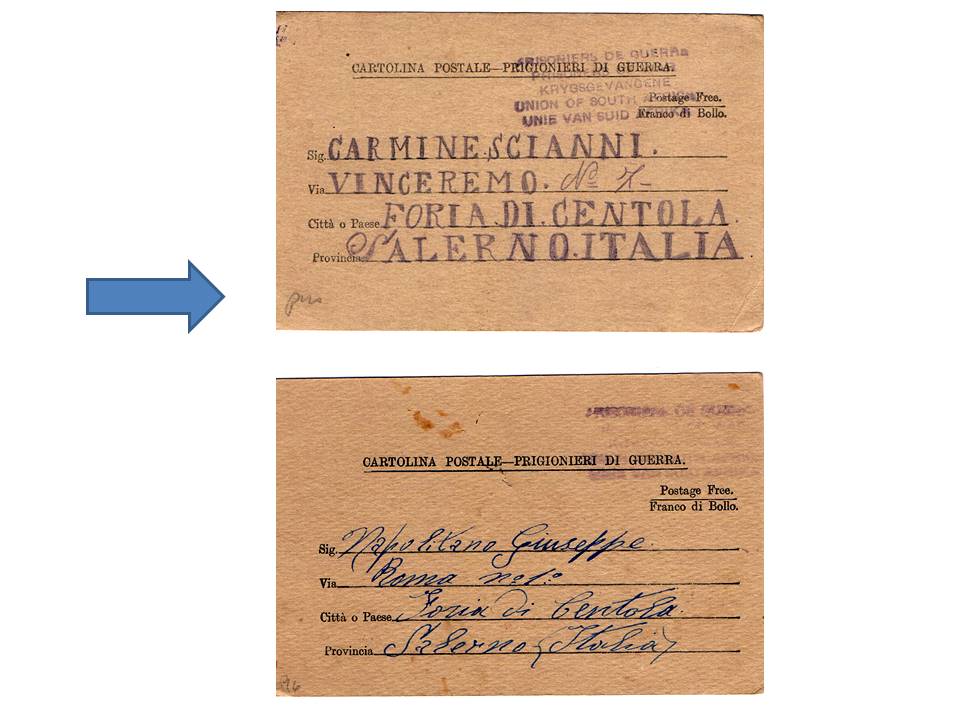 CARTOLINA POSTALE—PRIGIONIERI DI GUERRA.
PRISONIERS DE GUERRE
KRYGSGEVANGENE
UNION OF SOUTH AFRICA
UNIE VAN SUID AFRIKA
Postage Free.
Franco di Bollo.
Sig. CARMINE SCIANNI.
Via VINCEREMO. Nº 7-
Città o Paese FORIA DI CENTOLA.
Provincia SALERNO. ITALIA
CARTOLINA POSTALE—PRIGIONIERI DI GUERRA.
Postage Free.
Franco di Bollo.
Sig. Napolitano Giuseppe.
Via Roma nº 1º
Città o Paese Foria di Centola.
Provincia Salerno (Italia)